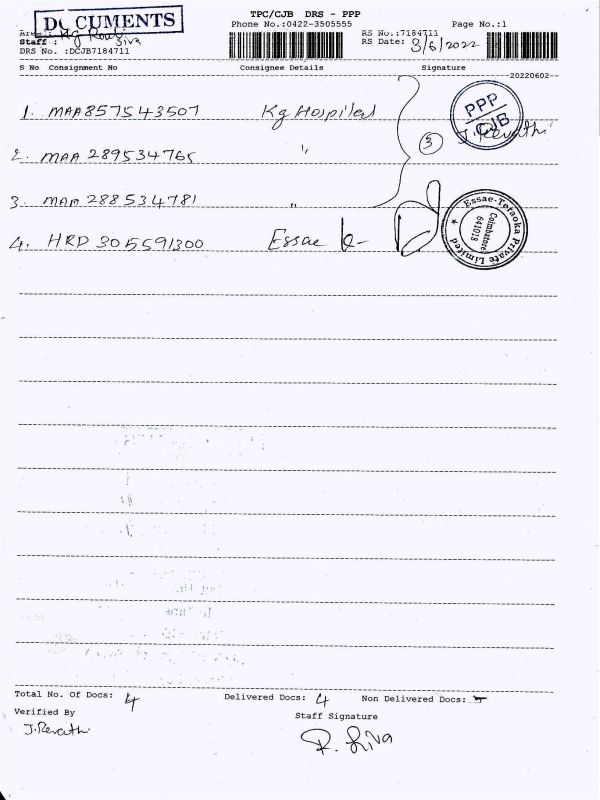 DOCUMENTS
TPC/CJB DRS - PPP
Phone No.:0422-3505555 Page No.:1
Area : Kg
Staff : Siva
RS No.:7184711
RS Date: 3/6/2022
DRS No. :DCJB7184711
S No Consignment No Consignee Details Signature
--20220602--
1. MAA857543507 Kg Hospital
PPP
CJB
J.Revathi
3
2. MAA 289534765 "
3. MAA 288534781 "
4. HRD 305591300 Essae
Essae-Teraoka Private Limited
Coimbatore
641018
Total No. Of Docs: 4 Delivered Docs: 4 Non Delivered Docs: -
Verified By
J.Revathi
Staff Signature
R. Siva